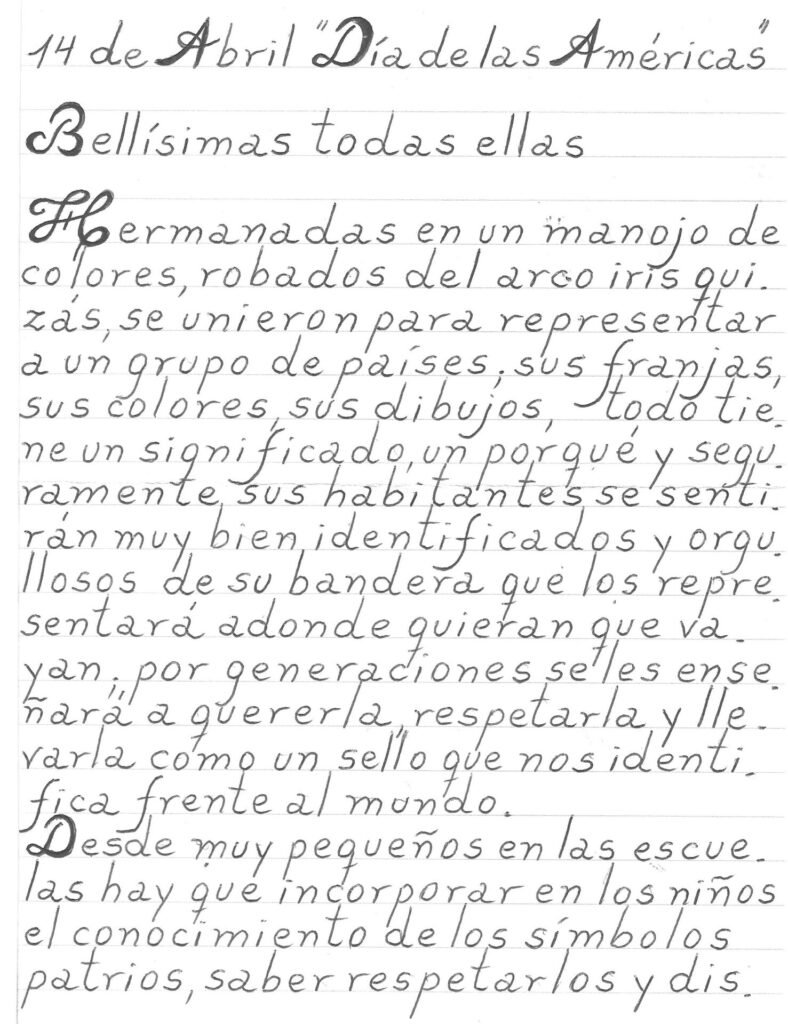 14 de Abril "Día de las Américas"
Bellísimas todas ellas
Hermanadas en un manojo de
colores, robados del arco iris qui-
zás, se unieron para representar
a un grupo de países; sus franjas,
sus colores, sus dibujos, todo tie-
ne un significado, un porqué y segu-
ramente, sus habitantes se senti-
rán muy bien identificados y orgu-
llosos de su bandera que los repre-
sentará adonde quieran que va-
yan; por generaciones se les ense-
ñará a quererla, respetarla y lle-
varla como un sello que nos identi-
fica frente al mundo.
Desde muy pequeños en las escue-
las hay que incorporar en los niños
el conocimiento de los símbolos
patrios, saber respetarlos y dis-